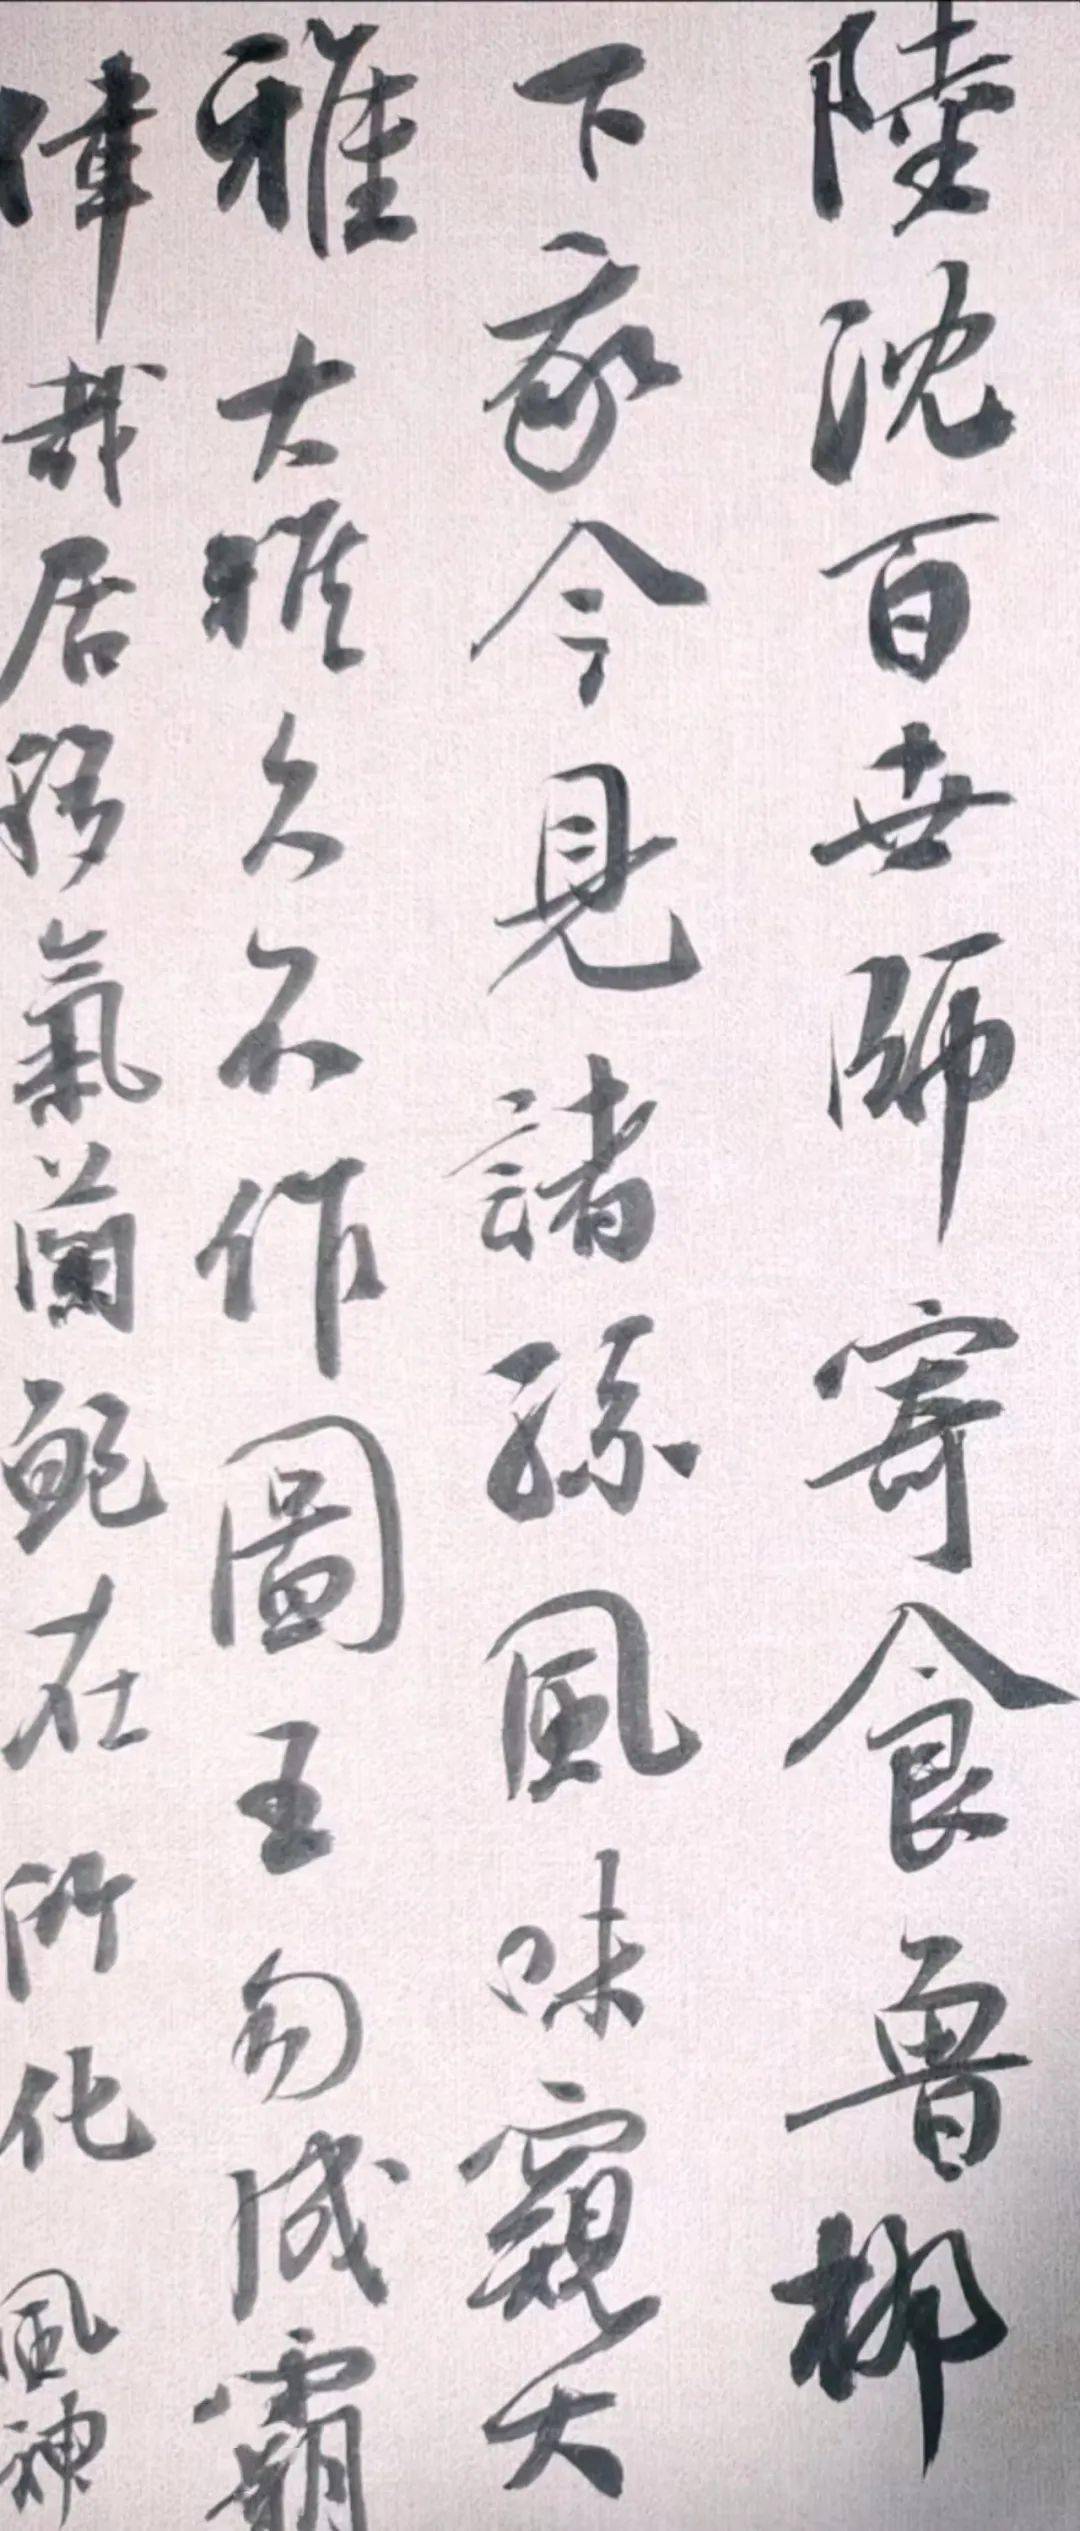 陸沈百世師寄食魯柳
下我今見諸孫風味窺大
雅大雅久不作圖王勿成霸
偉哉居移氣蘭鮑在所化風神